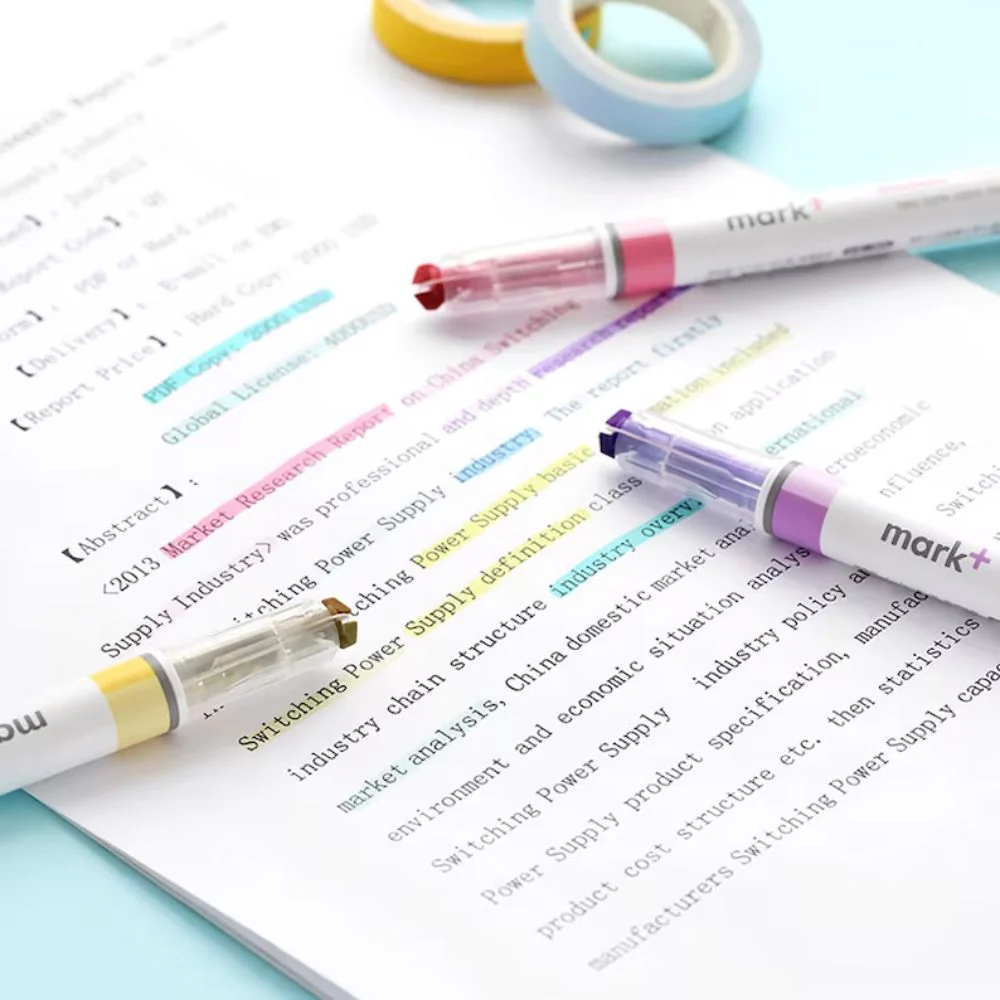 Report on China
Supply Industry
】: Jun/2013
Report Code】: QY
orm】: PDF or Hard copy
【Delivery】: E-mail or EMS
【Report Price】: Hard Copy: 2000 USD
PDF Copy: 2000 USD
Global License: 4000USD
【Abstract】:
<2013 Market Research Report on China Switching
Supply Industry> was professional and depth research report
itching Power Supply industry. The report firstly
ching Power Supply basic ation included
Switching Power Supply definition class on application
industry chain structure industry overv ernational
market analysis, China domestic market anal croeconomic
environment and economic situation analys nfluence,
Switching Power Supply industry policy a Switch
Power Supply product specification, manufac
product cost structure etc. then statistics
manufacturers Switching Power Supply capac
mark+
mark+
ma